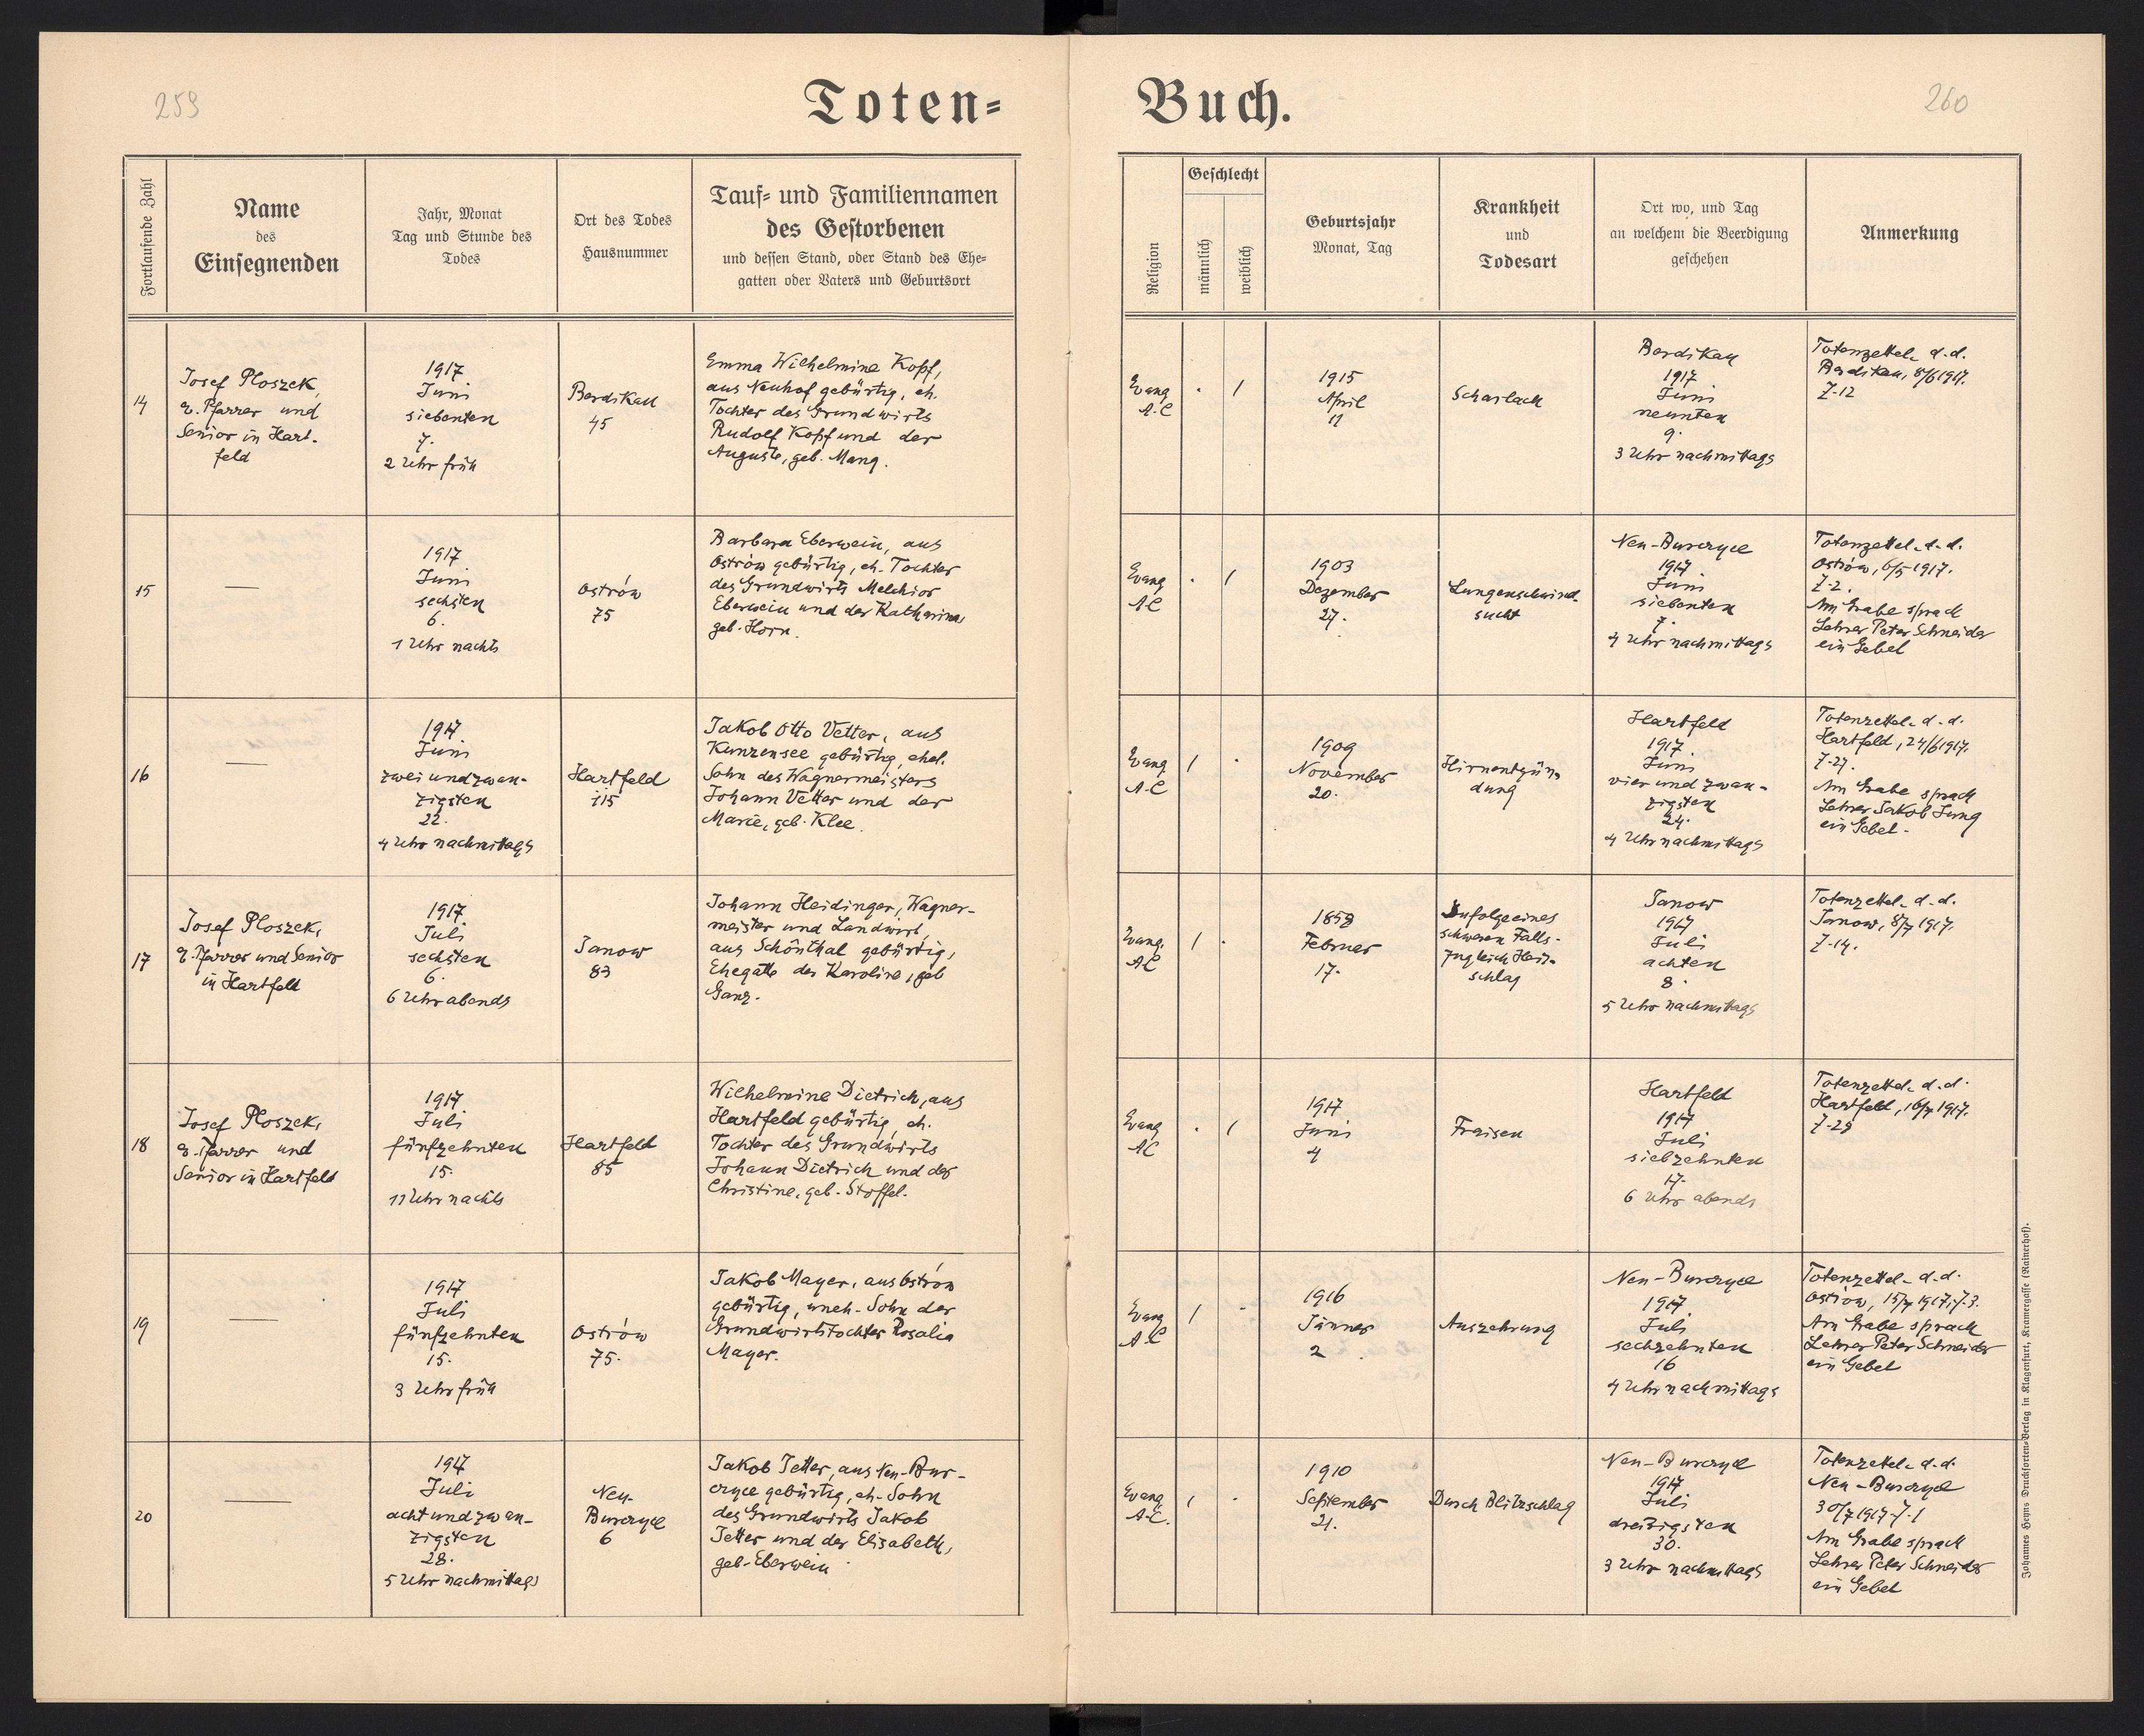 259
Toten=
Buch.
260
Fortlaufende Zahl
Name
des
Einsegnenden
Jahr, Monat
Tag und Stunde des
Todes
Ort des Todes
Hausnummer
Tauf= und Familiennamen
des Gestorbenen
und dessen Stand, oder Stand des Ehe=
gatten oder Vaters und Geburtsort
Religion
Geschlecht
männlich
weiblich
Geburtsjahr
Monat, Tag
Krankheit
und
Todesart
Ort wo, und Tag
an welchem die Beerdigung
geschehen
Anmerkung
14
Josef Ploszek,
ev. Pfarrer und
Senior in Hart-
feld
1917
Juni
siebenten
7.
2 Uhr früh
Berdikau
45
Emma Wilhelmine Kopf,
aus Neuhof gebürtig, eh.
Tochter des Grundwirts
Rudolf Kopf und der
Auguste, geb. Mang.
Evang
A.C
. /
1915
April
11
Scharlach
Berdikau
1917
Juni
neunten
9.
3 Uhr nachmittags
Totenzettel d.d.
Berdikau, 8/6 1917.
Z-12
15
—
1917
Juni
sechsten
6.
1 Uhr nachts
Ostrów
75
Barbara Eberwein, aus
Ostrów gebürtig, eh. Tochter
des Grundwirts Melchior
Eberwein und der Katharina,
geb. Horn.
Evang
AC
. /
1903
Dezember
27.
Lungenschwind-
sucht
Neu-Burczyce
1917
Juni
siebenten
7.
4 Uhr nachmittags
Totenzettel d.d.
Ostrów, 6/5 1917.
Z-2.
Am Grabe sprach
Lehrer Peter Schneider
ein Gebet
16
—
1917.
Juni
zwei und zwan-
zigsten
22.
4 Uhr nachmittags
Hartfeld
115
Jakob Otto Vetter, aus
Kunzensee gebürtig, ehel.
Sohn des Wagnermeisters
Johann Vetter und der
Marie, geb. Klee.
Evang
A.C
/ .
1909
November
20.
Hirnentzün-
dung
Hartfeld
1917.
Juni
vier und zwan-
zigsten
24.
4 Uhr nachmittags
Totenzettel d.d.
Hartfeld, 24/6 1917.
Z-27.
Am Grabe sprach
Lehrer Jakob Jung
ein Gebet.
17
Josef Ploszek,
ev. Pfarrer und Senior
in Hartfeld
1917
Juli
sechsten
6.
6 Uhr abends
Janow
83
Johann Heidinger, Wagner-
meister und Landwirt,
aus Schönthal gebürtig,
Ehegatte der Karoline, geb
Ganz.
Evang.
AC
/ .
Februar
17.
Infolge eines
schweren Falls-
zugleich Herz-
schlag
Janow
1917
Juli
achten
8.
5 Uhr nachmittags
Totenzettel d.d.
Janow, 8/7 1917.
Z-14.
18
Josef Ploszek,
ev. Pfarrer und
Senior in Hartfeld
1917
Juli
fünfzehnten
15.
11 Uhr nachts
Hartfeld
85
Wilhelmine Dietrich, aus
Hartfeld gebürtig, eh.
Tochter des Grundwirts
Johann Dietrich und der
Christine, geb. Stoffel.
Evang
AC
. /
1917
Juni
4
Fraisen
Hartfeld
1917
Juli
siebzehnten
17.
6 Uhr abends
Totenzettel d.d.
Hartfeld, 16/7 1917.
Z-29
19
—
1917
Juli
fünfzehnten
15.
3 Uhr früh
Ostrów
75.
Jakob Mayer, aus Ostrów
gebürtig, uneh. Sohn der
Grundwirtstochter Rosalia
Mayer.
Evang
A.C
/ .
1916
Jänner
2
Auszehrung
Neu-Burczyce
1917.
Juli
sechzehnten
16
4 Uhr nachmittags
Totenzettel d.d.
Ostrów, 15/7 1917, Z.3.
Am Grabe sprach
Lehrer Peter Schneider
ein Gebet
20
—
1917
Juli
acht und zwan-
zigsten
28.
5 Uhr nachmittags
Neu-
Burczyce
6
Jakob Jetter, aus Neu-Bur-
czyce gebürtig, eh. Sohn
des Grundwirts Jakob
Jetter und der Elisabeth,
geb. Eberwein
Evang
A.C.
/ .
1910
September
21.
Durch Blitzschlag
Neu-Burczyce
1917
Juli
dreißigsten
30.
3 Uhr nachmittags
Totenzettel d.d.
Neu-Burczyce
30/7 1917 Z.1
Am Grabe sprach
Lehrer Peter Schneider
ein Gebet
Johannes Heyns Drucksorten-Verlag in Klagenfurt, Kramergasse (Rainerhof).